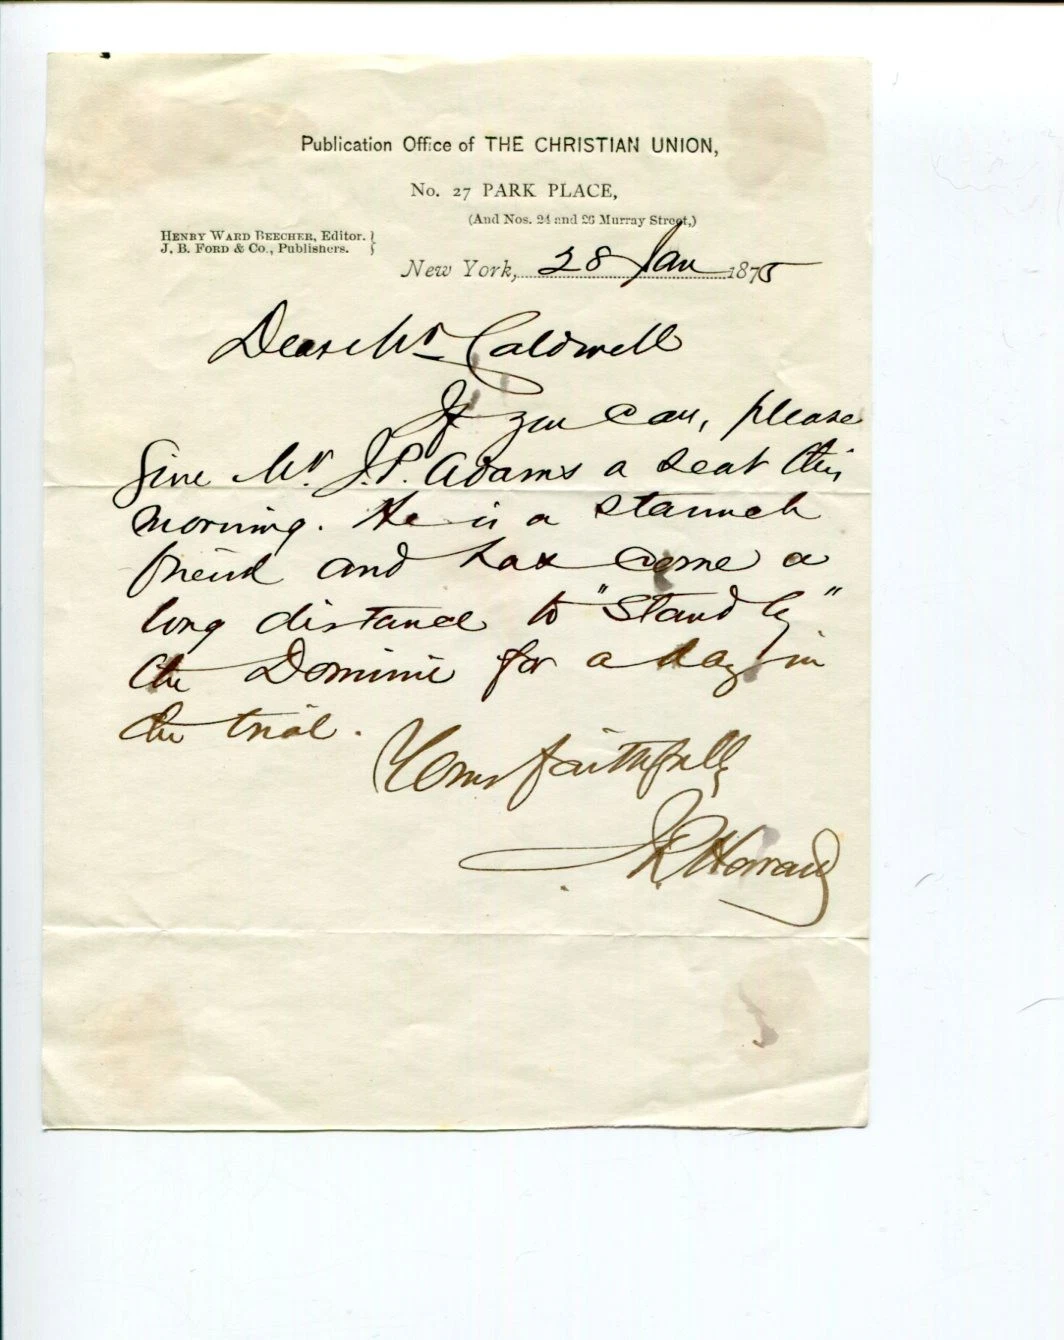 Publication Office of THE CHRISTIAN UNION,
No. 27 PARK PLACE,
(And Nos. 24 and 26 Murray Street,)
HENRY WARD BEECHER, Editor. }
J. B. FORD & Co., Publishers. }
New York, 28 Jan 1875
Dear Mr Caldwell
If you can, please
give Mr. J.P. Adams a seat this
morning. He is a staunch
friend and has come a
long distance to "stand by"
the Dominie for a day in
the trial.
Yours faithfully
J.R. Howard